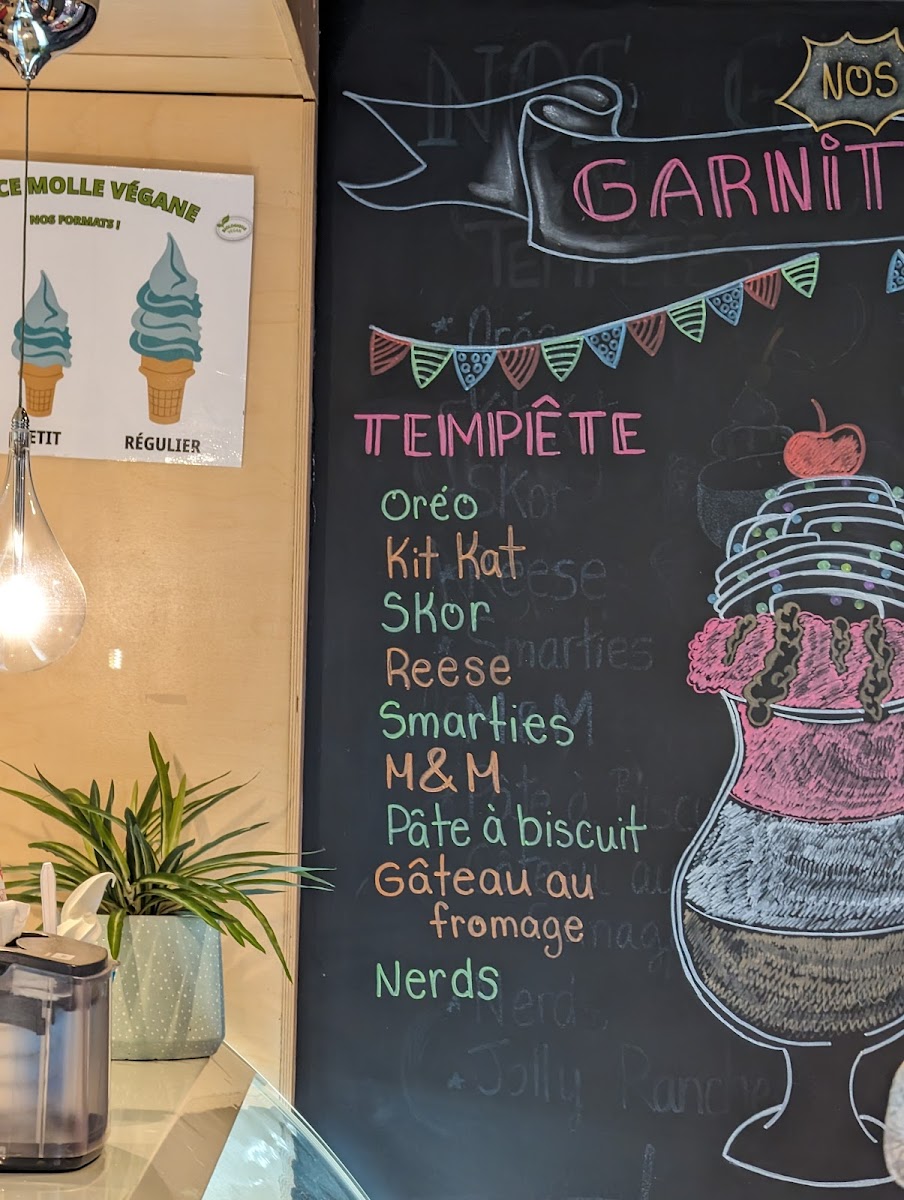 CE MOLLE VÉGANE
NOS FORMATS !
ETIT
RÉGULIER
NOS
GARNIT
TEMPÊTE
Oréo
Kit Kat
SKor
Reese
Smarties
M&M
Pâte à biscuit
Gâteau au
fromage
Nerds